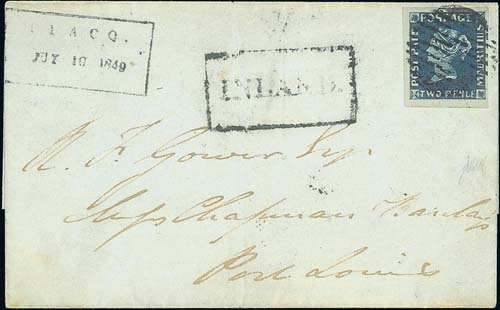 LACQ.
JUY 10 1849
INLAND.
POSTAGE
POST PAID
MAURITIUS
TWO PENCE
R. F. Gower Esq
Mess Chapman Barclay
Port Louis